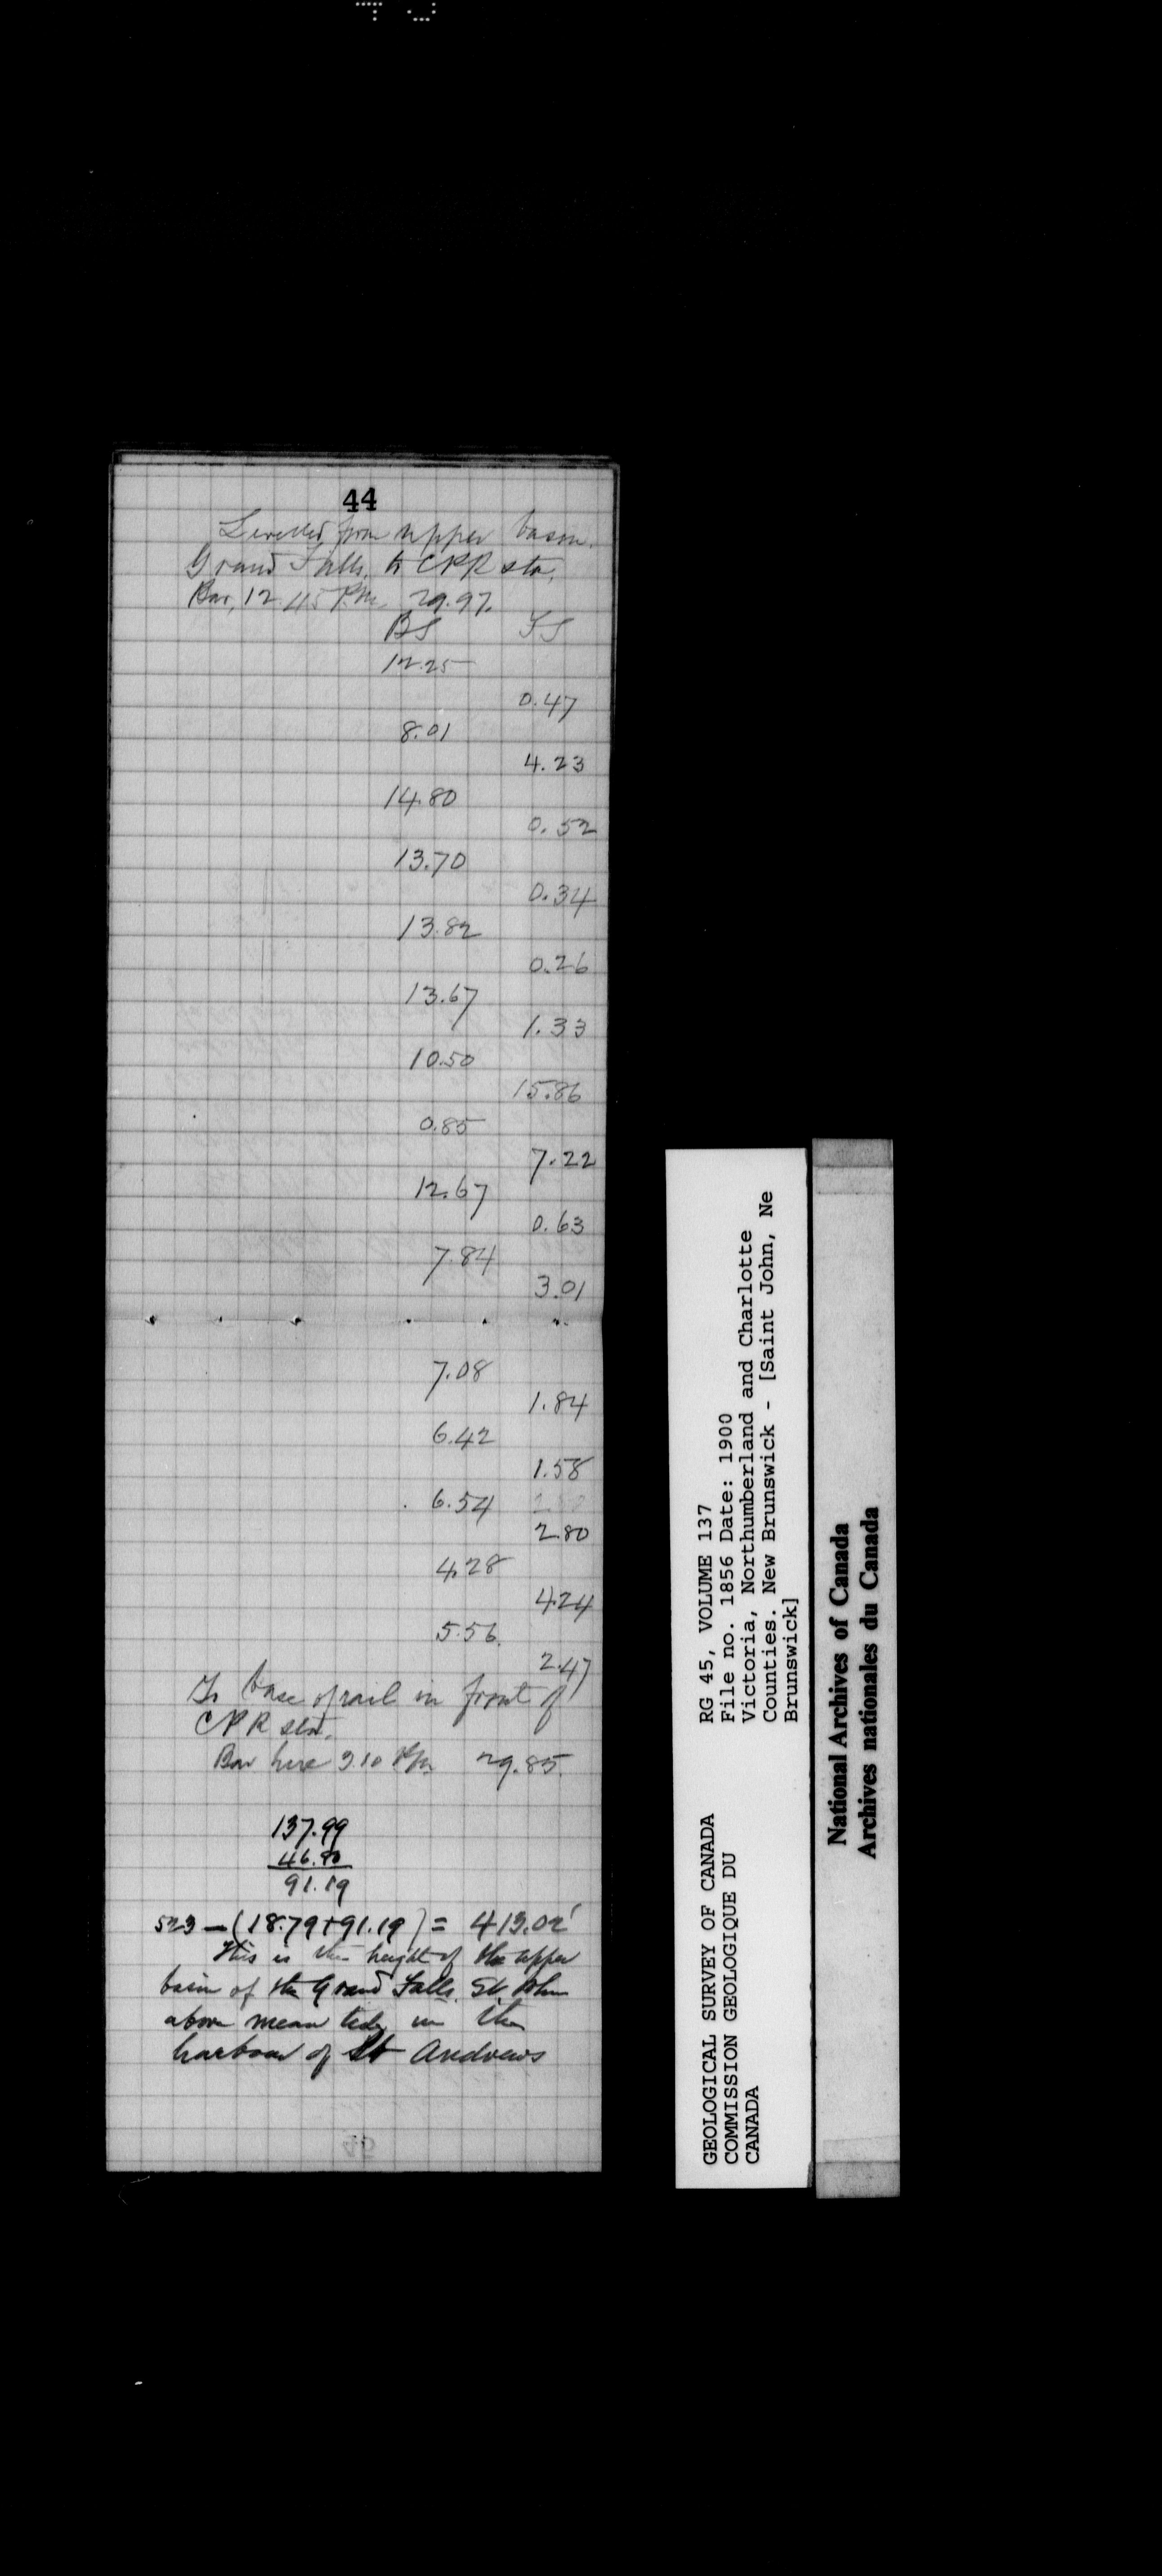 44
Levelled from upper bason.
Grand Falls, to CPR sta,
Bar, 12.45 P.M. 29.97.
BS FS
12.25
0.47
8.01
4.23
14.80
0.52
13.70
0.34
13.82
0.26
13.67
1.33
10.50
15.86
0.85
7.22
12.67
0.63
7.84
3.01
7.08
1.84
6.42
1.58
6.54
2.80
4.28
4.24
5.56.
2.47
To base of rail in front of
CPR stat.
Bar here 3.10 P.M. 29.85.
137.99
46.80
91.19
523 - (18.79+91.19) = 413.02'
This is the height of the upper
basin of the Grand Falls. St. John
above mean tide in the
harbour of St Andrews
GEOLOGICAL SURVEY OF CANADA
COMMISSION GEOLOGIQUE DU
CANADA
RG 45, VOLUME 137
File no. 1856 Date: 1900
Victoria, Northumberland and Charlotte
Counties. New Brunswick - [Saint John, Ne
Brunswick]
National Archives of Canada
Archives nationales du Canada